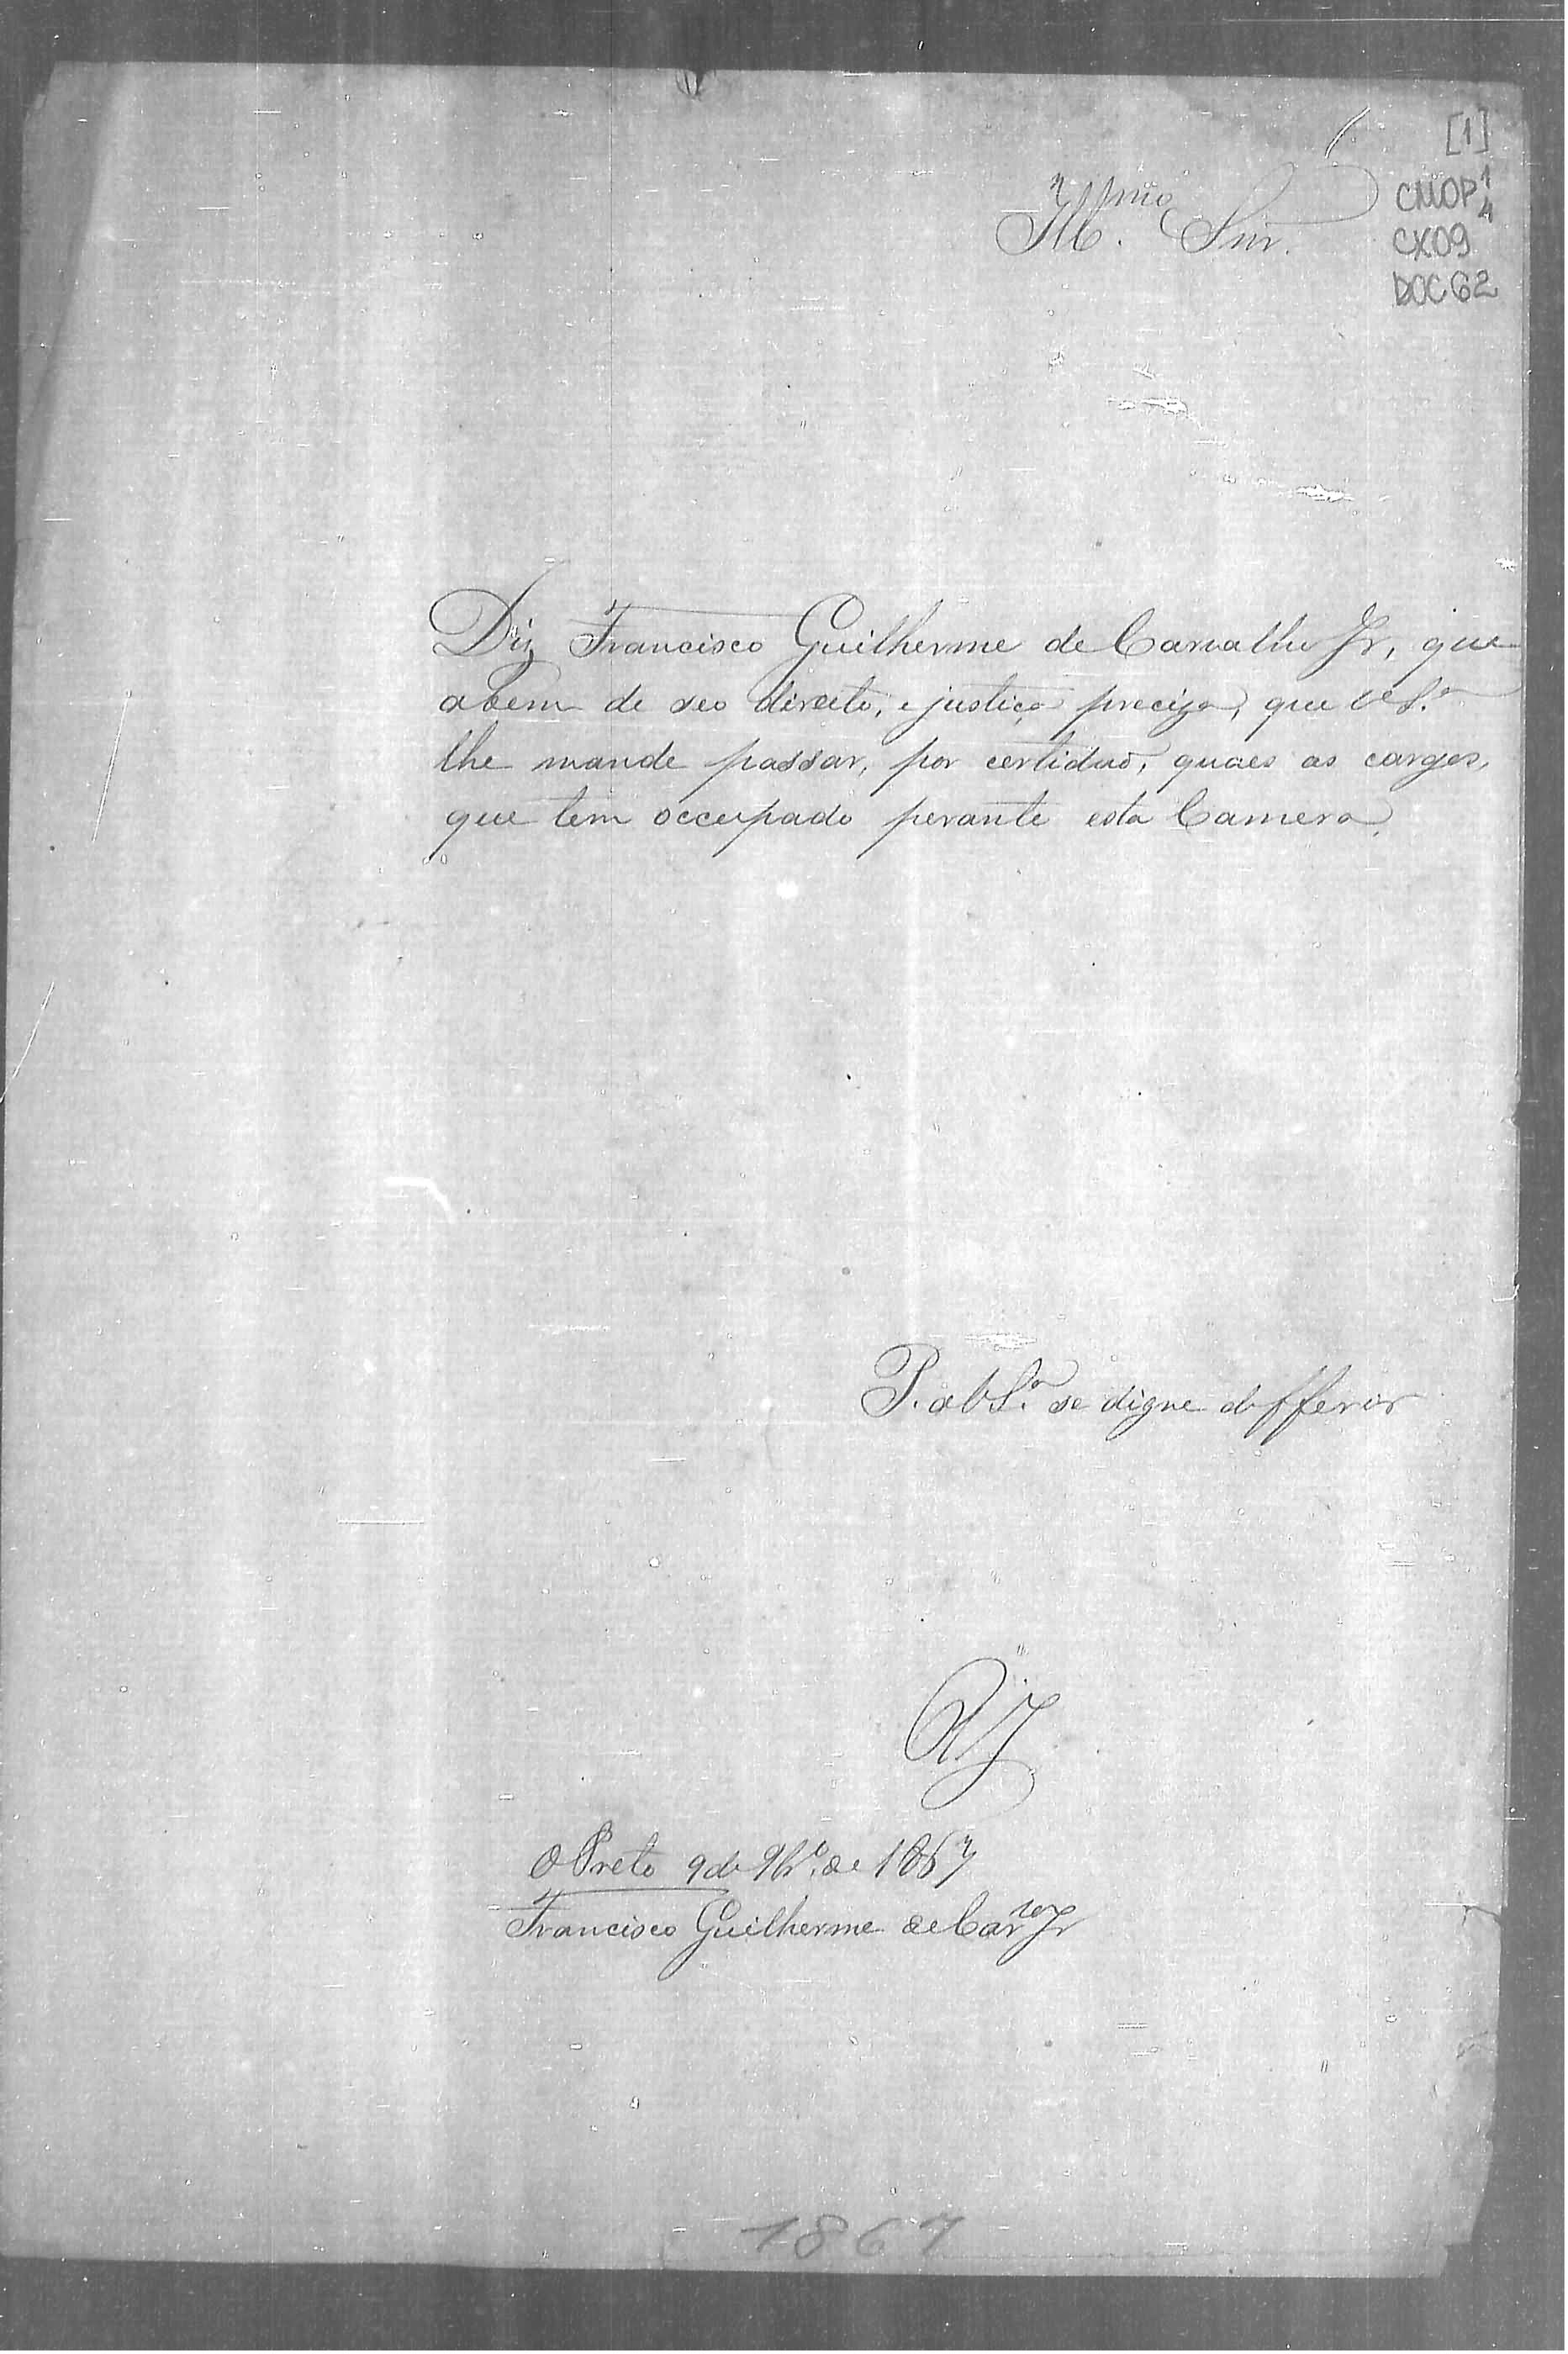 [1]
CMOP 1/4
CX09
DOC 62
Illmo. Snr.
Diz Francisco Guilherme de Carvalho Jr, que
abem de seo direito, e justiça preciza, que VS.ª
lhe mande passar, por certidaõ, quaes as cargos,
que tem occupado perante esta Camera.
P. a VS.ª se digne defferir
RJ
O Preto 9 de 9br.º de 1867
Francisco Guilherme de Car.º Jr
1867